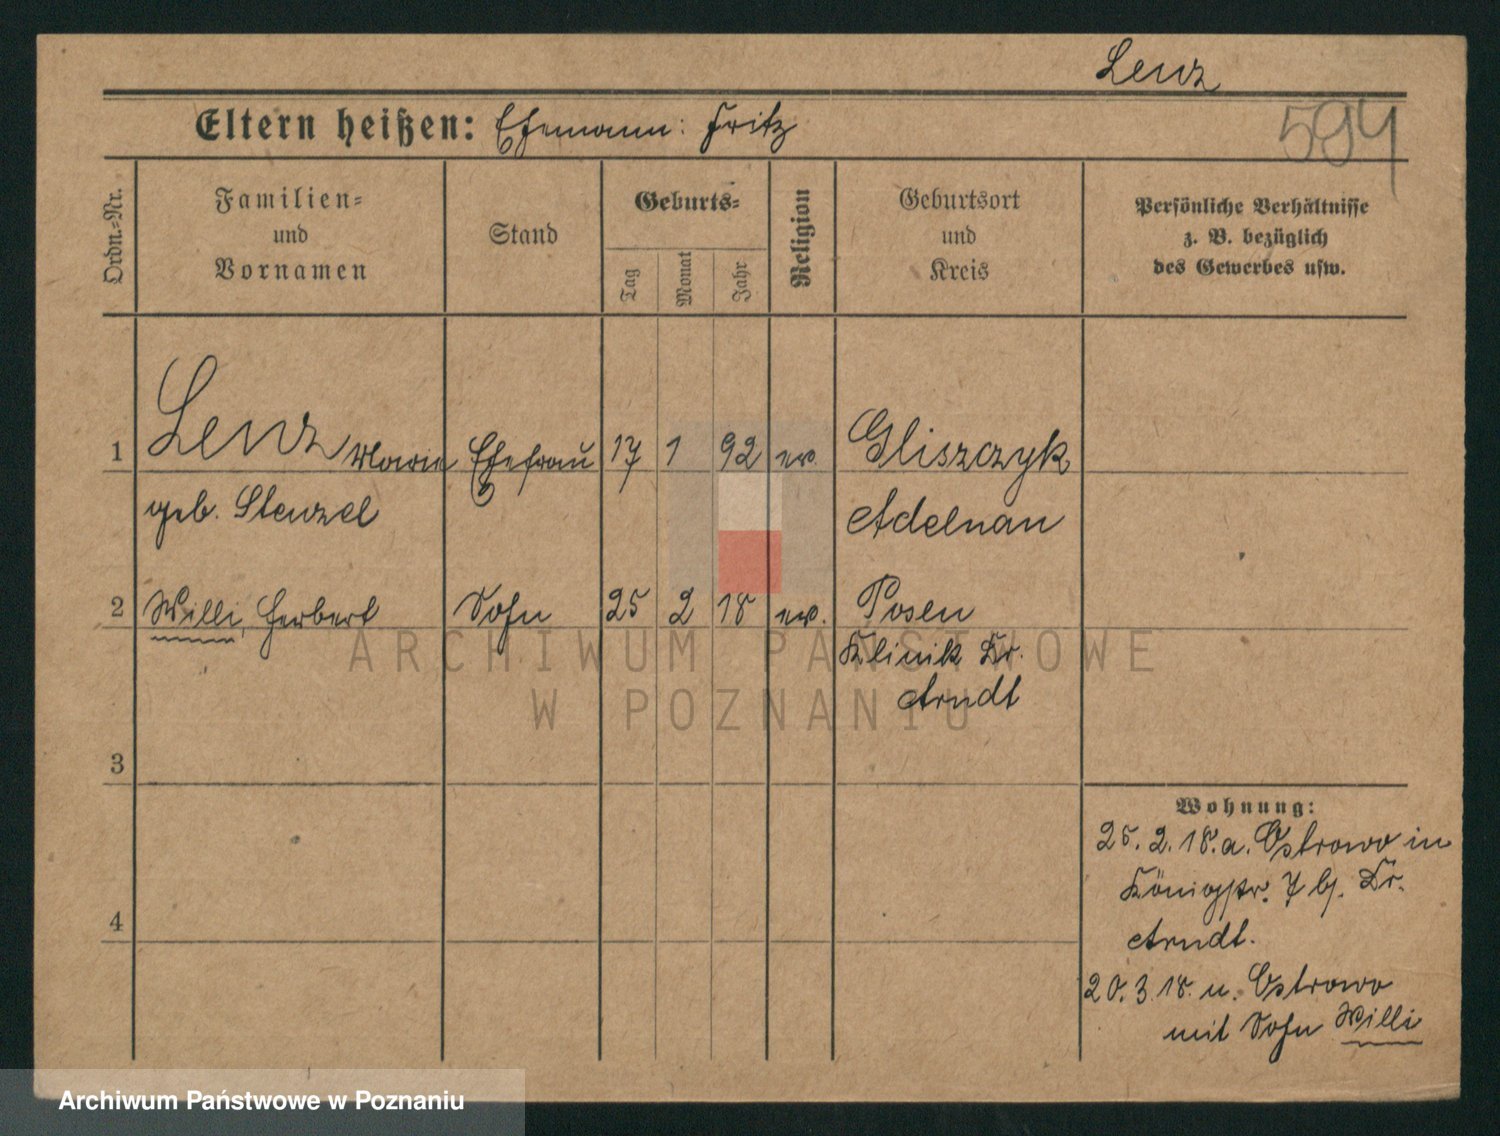 Lenz
594
Eltern heißen: Ehemann: Fritz
Ordn.=Nr.
Familien=
und
Vornamen
Stand
Geburts=
Tag
Monat
Jahr
Religion
Geburtsort
und
Kreis
Persönliche Verhältnisse
z. B. bezüglich
des Gewerbes usw.
1 Lenz Marie Ehefrau 17 1 92 ev. Gliszczyk
geb. Stenzel Adelnau
2 Willi, Herbert Sohn 25 2 18 ev. Posen
Klinik Dr.
Arndt
3
4
Wohnung:
25. 2. 18. a. Ostrowo in
Königstr. 7 bj. Dr.
Arndt.
20. 3. 18. u. Ostrowo
mit Sohn Willi
ARCHIWUM PAŃSTWOWE
W POZNANIU
Archiwum Państwowe w Poznaniu